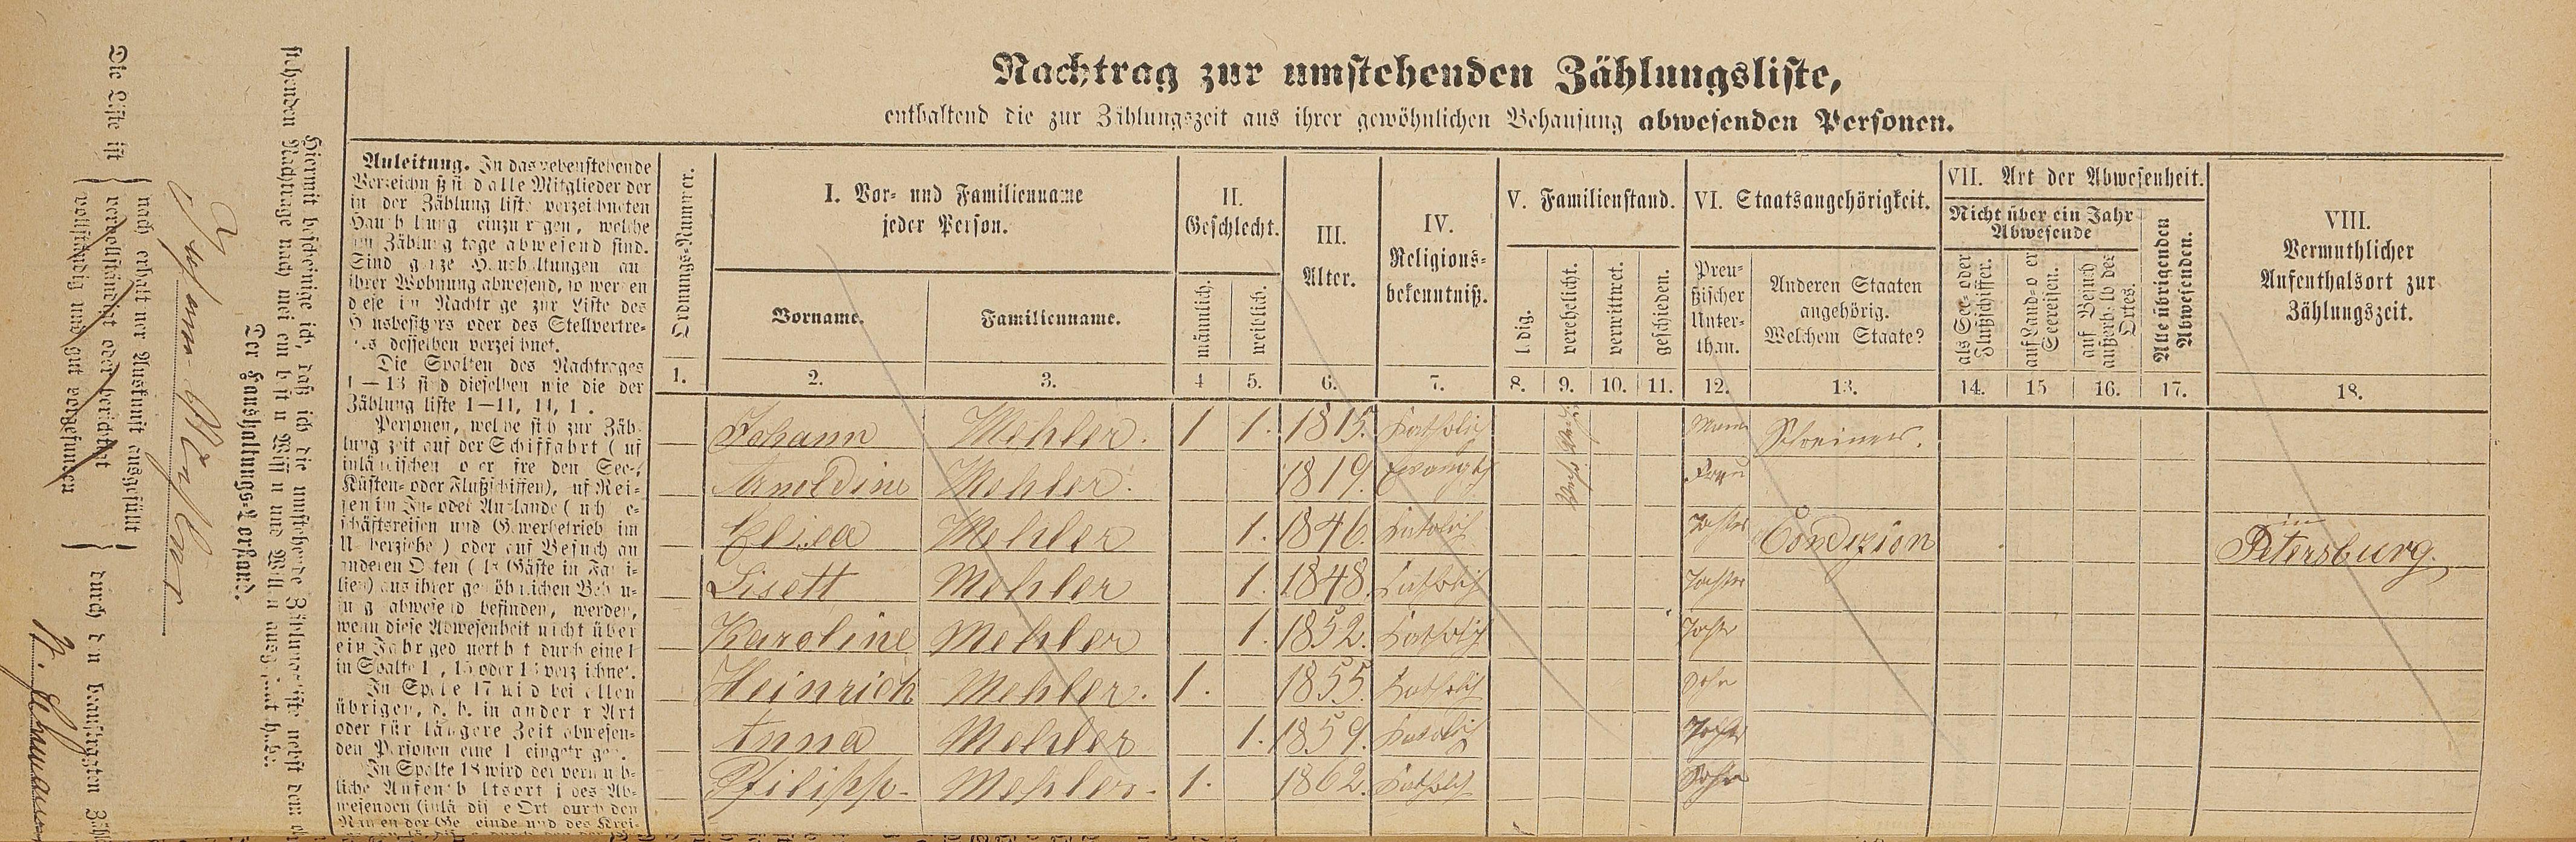 Nachtrag zur umstehenden Zählungsliste,
enthaltend die zur Zählungszeit aus ihrer gewöhnlichen Behausung abwesenden Personen.
Anleitung. In das nebenstehende
Verzeichniß sind alle Mitglieder der
in der Zählungsliste verzeichneten
Haushaltung einzutragen, welche
am Zählungstage abwesend sind.
Sind ganze Haushaltungen aus
ihrer Wohnung abwesend, so werden
diese im Nachtrage zur Liste des
Hausbesitzers oder des Stellvertre-
ters desselben verzeichnet.
Die Spalten des Nachtrages
1—13 sind dieselben wie die der
Zählungsliste 1—11,
Personen, welche sich zur Zäh-
lungszeit auf der Schiffahrt (auf
inländischen oder fremden See-,
Küsten- oder Flußschiffen), auf Rei-
sen im In- oder Auslande (auch Ge-
schäftsreisen und Gewerbetrieb im
Umherziehen) oder auf Besuch an
anderen Orten (als Gäste in Fami-
lien) aus ihrer gewöhnlichen Behau-
sung abwesend befinden, werden,
wenn diese Abwesenheit nicht über
ein Jahr gedauert hat durch eine 1
in Spalte 14, 15 oder 16 verzeichnet.
In Spalte 17 wird bei allen
übrigen, d. h. in anderer Art
oder für längere Zeit abwesen-
den Personen eine 1 eingetragen.
In Spalte 18 wird der vermuth-
liche Aufenthaltsort des Ab-
wesenden (inländische Orte durch den
Namen der Gemeinde und des Krei-
Ordnungs-Nummer.
I. Vor- und Familienname
jeder Person.
Vorname.
Familienname.
II.
Geschlecht.
männlich.
weiblich.
III.
Alter.
IV.
Religions-
bekenntniß.
V. Familienstand.
ledig.
verehelicht.
verwittwet.
geschieden.
VI. Staatsangehörigkeit.
Preu-
ßischer
Unter-
than.
Anderen Staaten
angehörig.
Welchem Staate?
VII. Art der Abwesenheit.
Nicht über ein Jahr
Abwesende
als See- oder
Flußschiffer.
auf Land- oder
Seereisen.
auf Besuch
außerhalb des
Ortes.
Alle übrigenden
Abwesenden.
VIII.
Vermuthlicher
Aufenthalsort zur
Zählungszeit.
1. 2. 3. 4 5. 6. 7. 8. 9. 10. 11. 12. 13. 14. 15 16. 17. 18.
Johann Mehler. 1 1. 1815. Katholich Mann Schreiner.
Arnoldine Mehler. 1819. Frau
Elisea Mehler 1. 1846. Katolich Condizion in Petersburg.
Lisett Mehler 1. 1848. Katholich
Karoline Mehler 1. 1852. Katholich
Heinrich Mehler. 1. 1855. Katholich Sohn
Anna Mehler 1. 1859. Katolich
Philipp. Mehler. 1. 1862. Katholich Sohn
Hiermit bescheinige ich, daß ich die umstehende Zählungsliste nebst dem
stehenden Nachtrage nach meinem besten Wissen und Willen ausgefüllt habe.
Der Haushaltungs-Vorstand.
Johann Mehler
Die Liste ist
nach erhaltener Auskunft ausgefüllt
vervollständigt oder berichtigt
vollständig und gut vorgefunden
durch den beauftragten